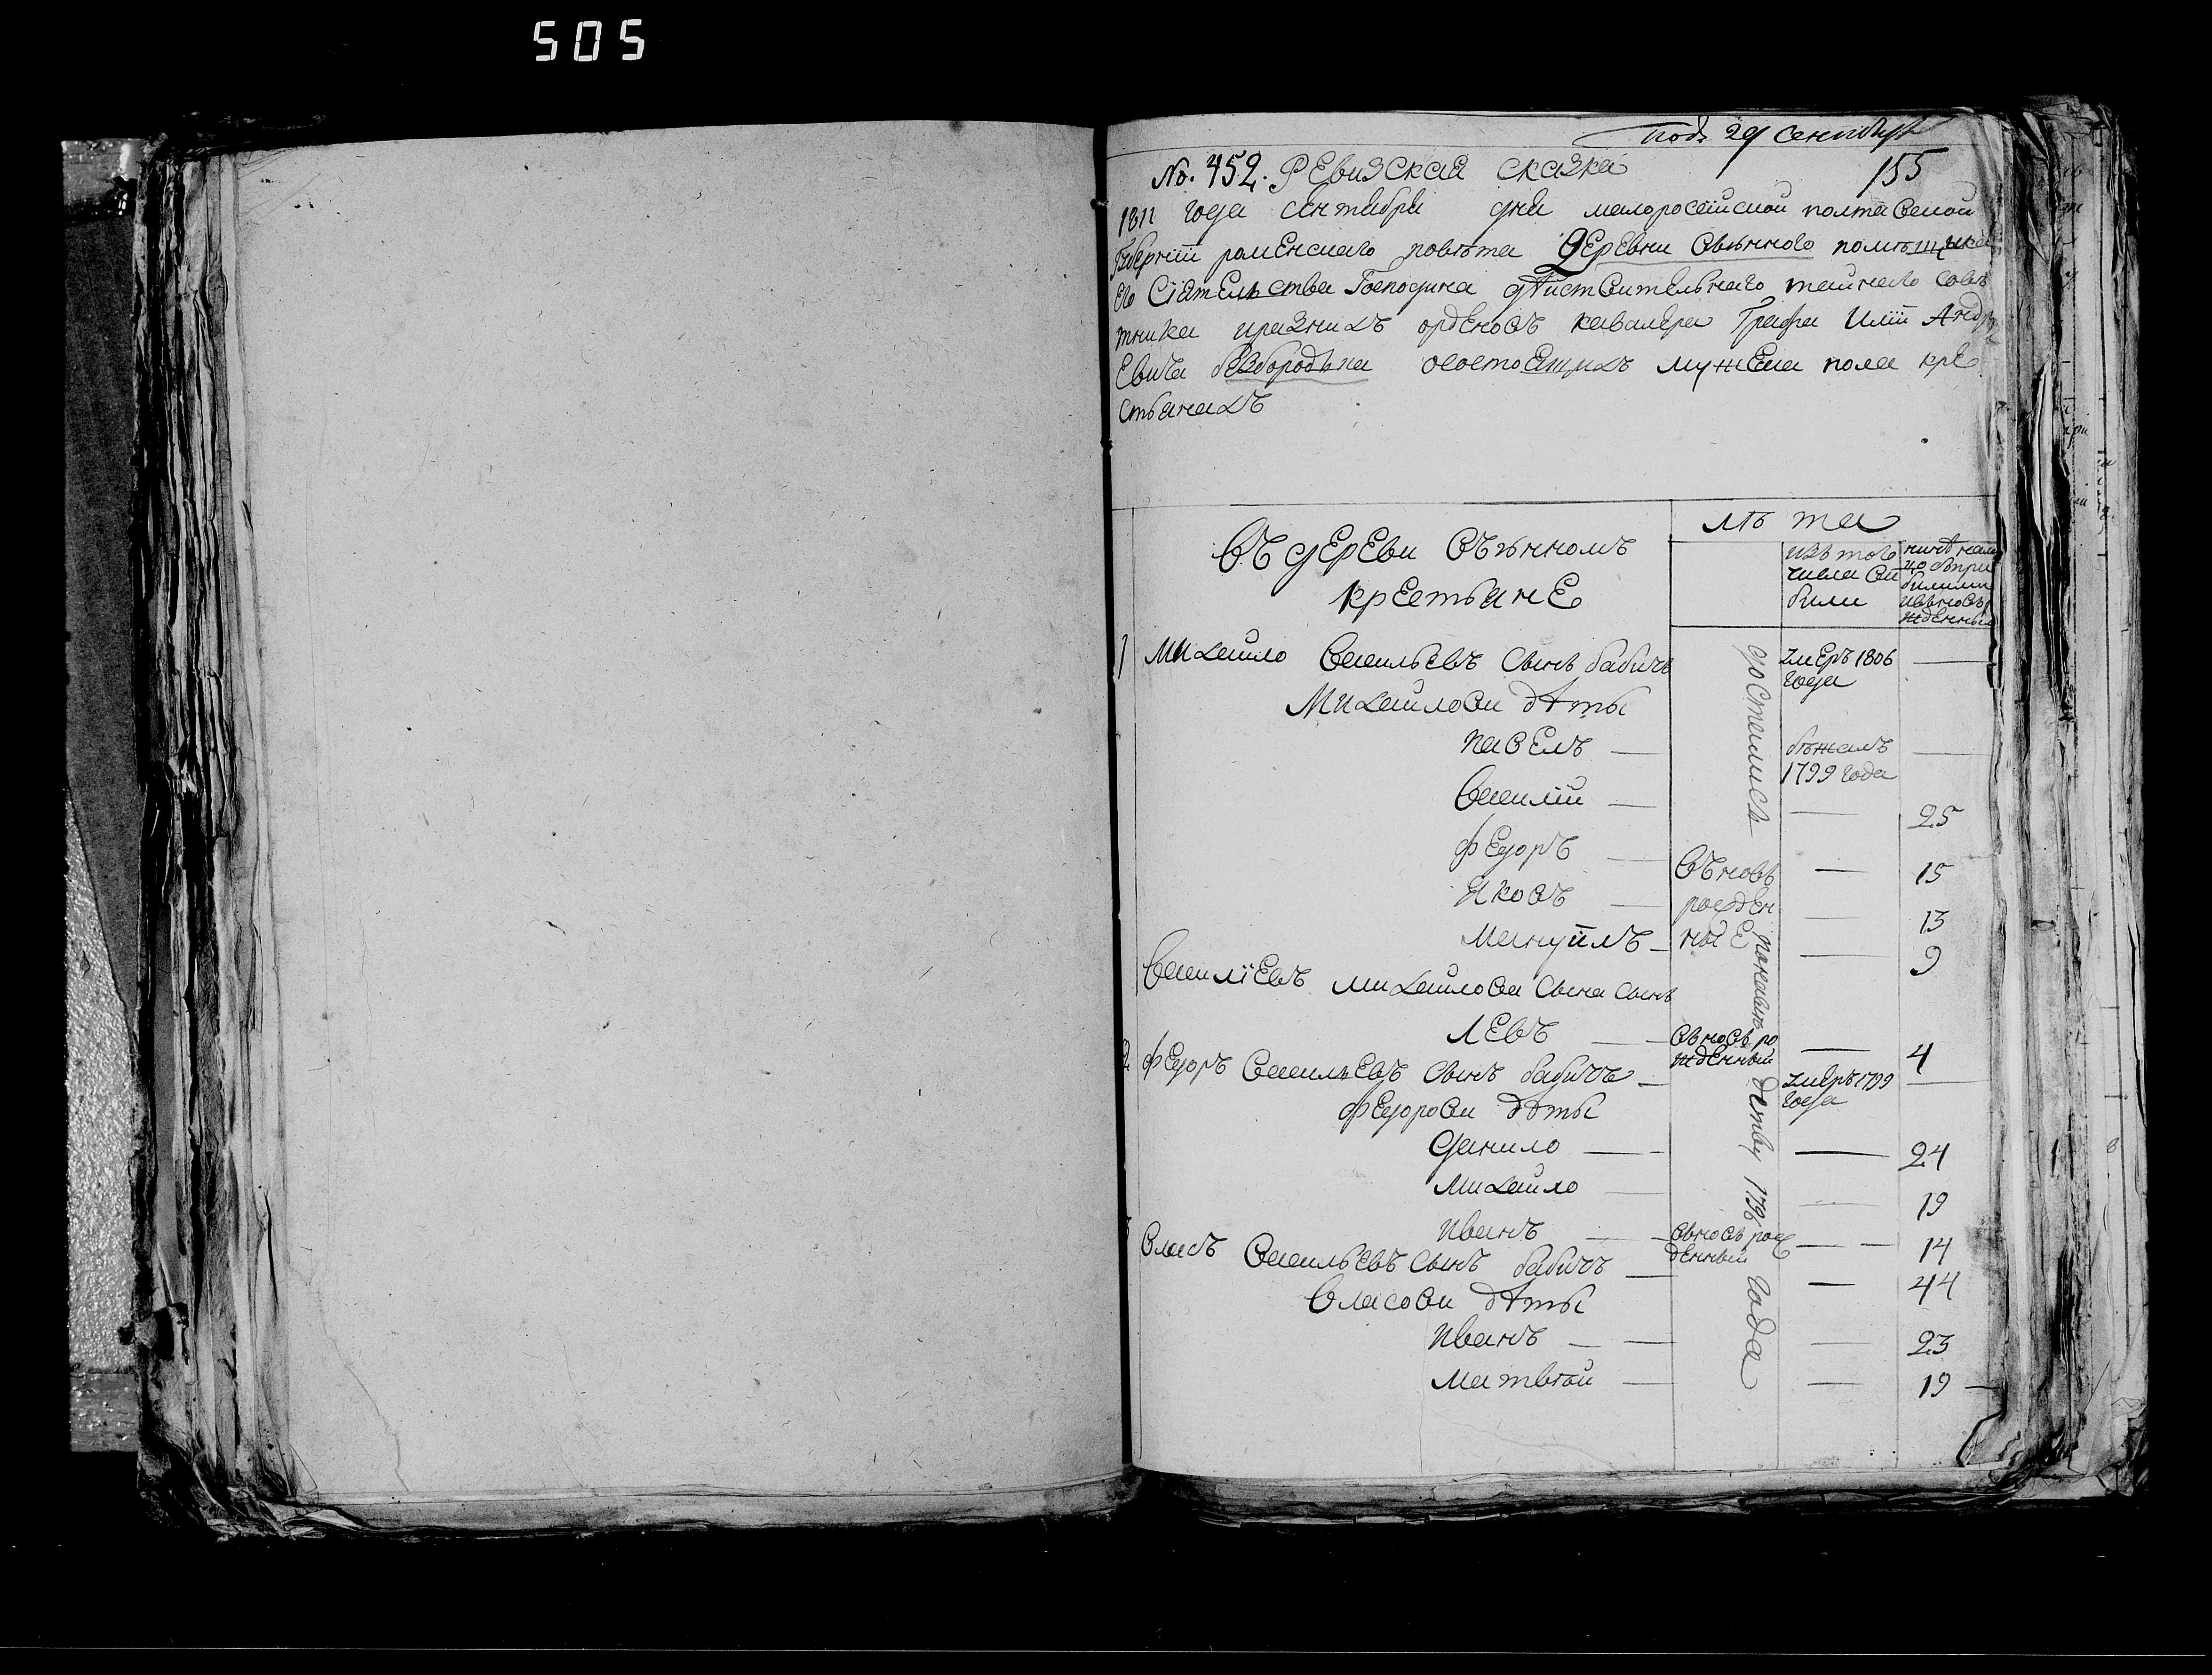 505
подъ 29 сентября
No. 452. Ревизская сказка
155
1811 года сентября дня малоросейской полтавской
Губернии роменскаго повѣта Деревни Свѣчного помѣщика
его Сіятельства Господина дѣйствительнаго тайнаго совѣ
тника и разнихъ орденовъ кавалера Графа Иліи Андр
Евича безбородька осостоящихъ мужеска пола кре
стьянахъ
въ деревни
крестьяне
лѣта
изъ того
числа ви
били
1 михайло васильевъ сынъ бабичъ
умеръ 1806
года
Михайлови дѣты
павелъ
бѣжалъ
1799 года
василій
25
федоръ
15
яковъ
въновъ
рожден
ные
13
мануилъ
9
василіевъ михайлова сына сынъ
левъ
вьновъ ро
жденный
4
2 федоръ василиевъ сынъ бабичъ
умеръ 1799
года
федорови дѣты
данило
24
михайло
19
иванъ
вьновъ рож
денный
14
власъ васильевъ сынъ бабичъ
44
власови дѣты
иванъ
23
матвѣй
19
года